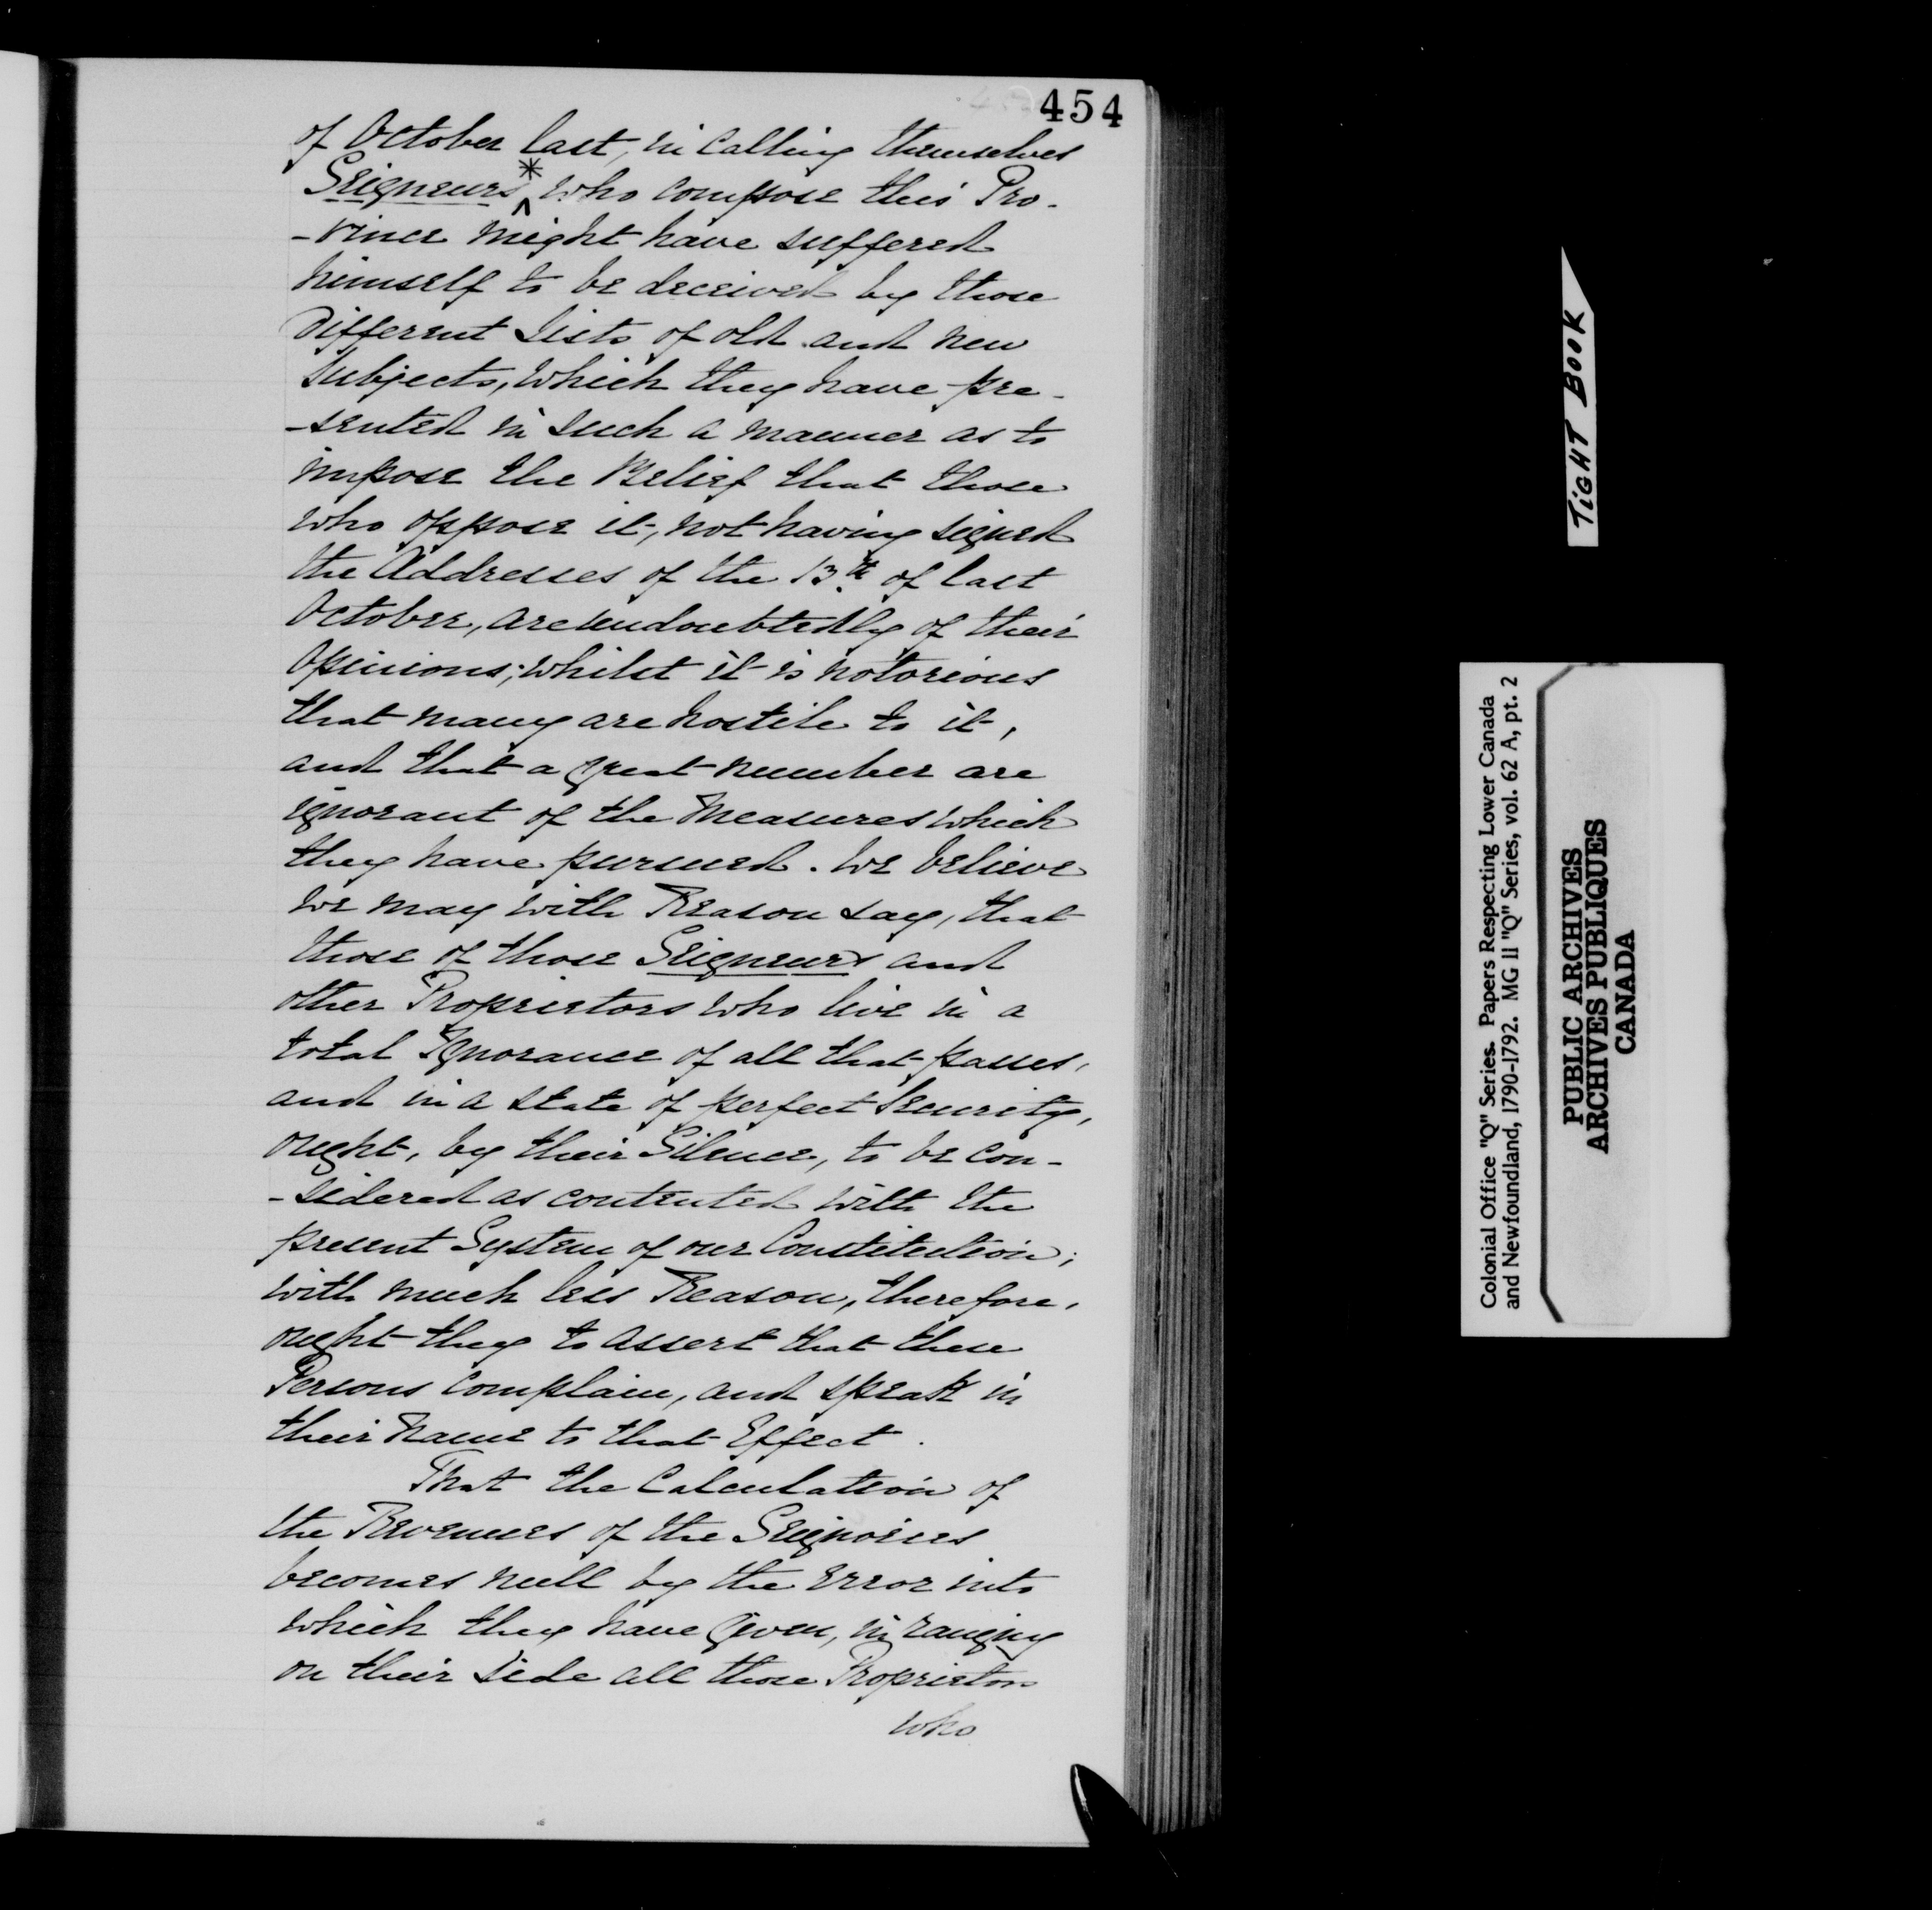 454
of October last, in calling themselves
Seigneurs * ^ who compose this Pro-
-vince might have suffered
himself to be deceived by those
different Lists of old and new
Subjects, which they have pre-
-sented in such a manner as to
impose the Belief that those
who oppose it, not having signed
the Addresses of the 13th of last
October, are undoubtedly of their
Opinions; whilst it is notorious
that many are hostile to it,
and that a great number are
ignorant of the Measures which
they have pursued. We believe
we may with Reason say, that
those of those Seigneurs and
other Proprietors who live in a
total Ignorance of all that passes,
and in a state of perfect Security,
ought, by their Silence, to be con-
-sidered as contented with the
present System of our Constitution;
with much less Reason, therefore,
ought they to assert that these
Persons complain, and speak in
their Name to that Effect.
That the Calculation of
the Revenues of the Seignories
becomes null by the Error into
which they have given, in ranging
on their side all those Proprietors
who
TIGHT BOOK
Colonial Office "Q" Series. Papers Respecting Lower Canada
and Newfoundland, 1790-1792. MG 11 "Q" Series, vol. 62 A, pt. 2
PUBLIC ARCHIVES
ARCHIVES PUBLIQUES
CANADA